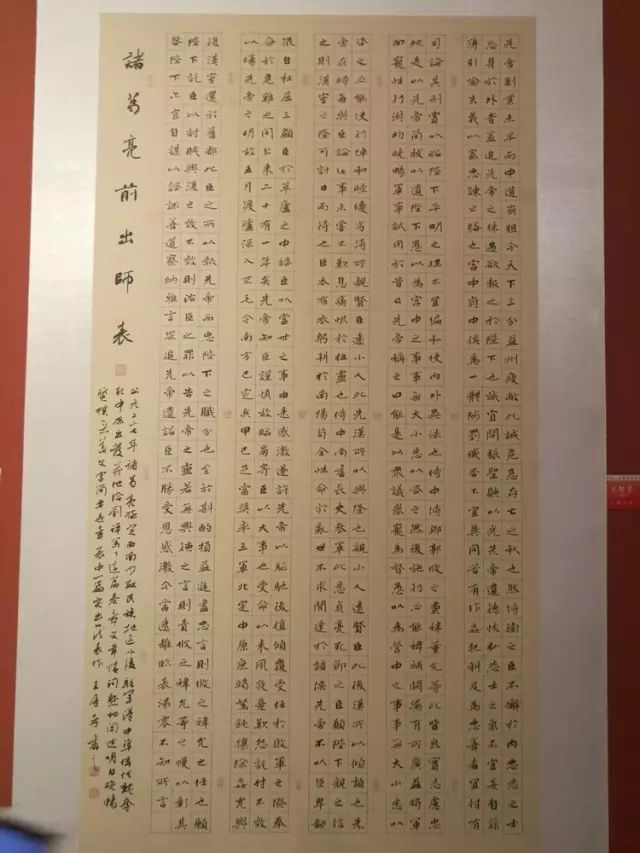 先帝創業未半而中道崩殂今天下三分益州疲敝此誠危急存亡之秋也然侍衛之臣不懈於內忠志之士
忘身於外者蓋追先帝之殊遇欲報之於陛下也誠宜開張聖聽以光先帝遺德恢弘志士之氣不宜妄自菲
薄引喻失義以塞忠諫之路也宮中府中俱為一體陟罰臧否不宜異同若有作姦犯科及為忠善者宜付有
司論其刑賞以昭陛下平明之理不宜偏私使內外異法也侍中侍郎郭攸之費禕董允等此皆良實志慮忠
純是以先帝簡拔以遺陛下愚以為宮中之事事無大小悉以咨之然後施行必能裨補闕漏有所廣益將軍
向寵性行淑均曉暢軍事試用於昔日先帝稱之曰能是以眾議舉寵為督愚以為營中之事事無大小悉以
咨之必能使行陣和睦優劣得所親賢臣遠小人此先漢所以興隆也親小人遠賢臣此後漢所以傾頹也先
帝在時每與臣論此事未嘗不歎息痛恨於桓靈也侍中尚書長史參軍此悉貞亮死節之臣願陛下親之信
之則漢室之隆可計日而待也臣本布衣躬耕於南陽苟全性命於亂世不求聞達於諸侯先帝不以臣卑鄙
猥自枉屈三顧臣於草廬之中諮臣以當世之事由是感激遂許先帝以驅馳後值傾覆受任於敗軍之際奉
命於危難之間爾來二十有一年矣先帝知臣謹慎故臨崩寄臣以大事也受命以來夙夜憂歎恐託付不效
以傷先帝之明故五月渡瀘深入不毛今南方已定兵甲已足當獎率三軍北定中原庶竭駑鈍攘除姦凶興
復漢室還於舊都此臣之所以報先帝而忠陛下之職分也至於斟酌損益進盡忠言則攸之禕允之任也願
陛下託臣以討賊興復之效不效則治臣之罪以告先帝之靈若無興德之言則責攸之禕允等之慢以彰其
咎陛下亦宜自謀以諮諏善道察納雅言深追先帝遺詔臣不勝受恩感激今當遠離臨表涕零不知所言
諸葛亮前出師表
公元二二七年諸葛亮定西南少數民族地區以後駐軍漢中準備伐魏奪
取中原出發前他給劉禪寫了這篇奏章文章情詞懇切闡述明白曉暢
質樸文字簡是章表中一篇突出的代表作 王書